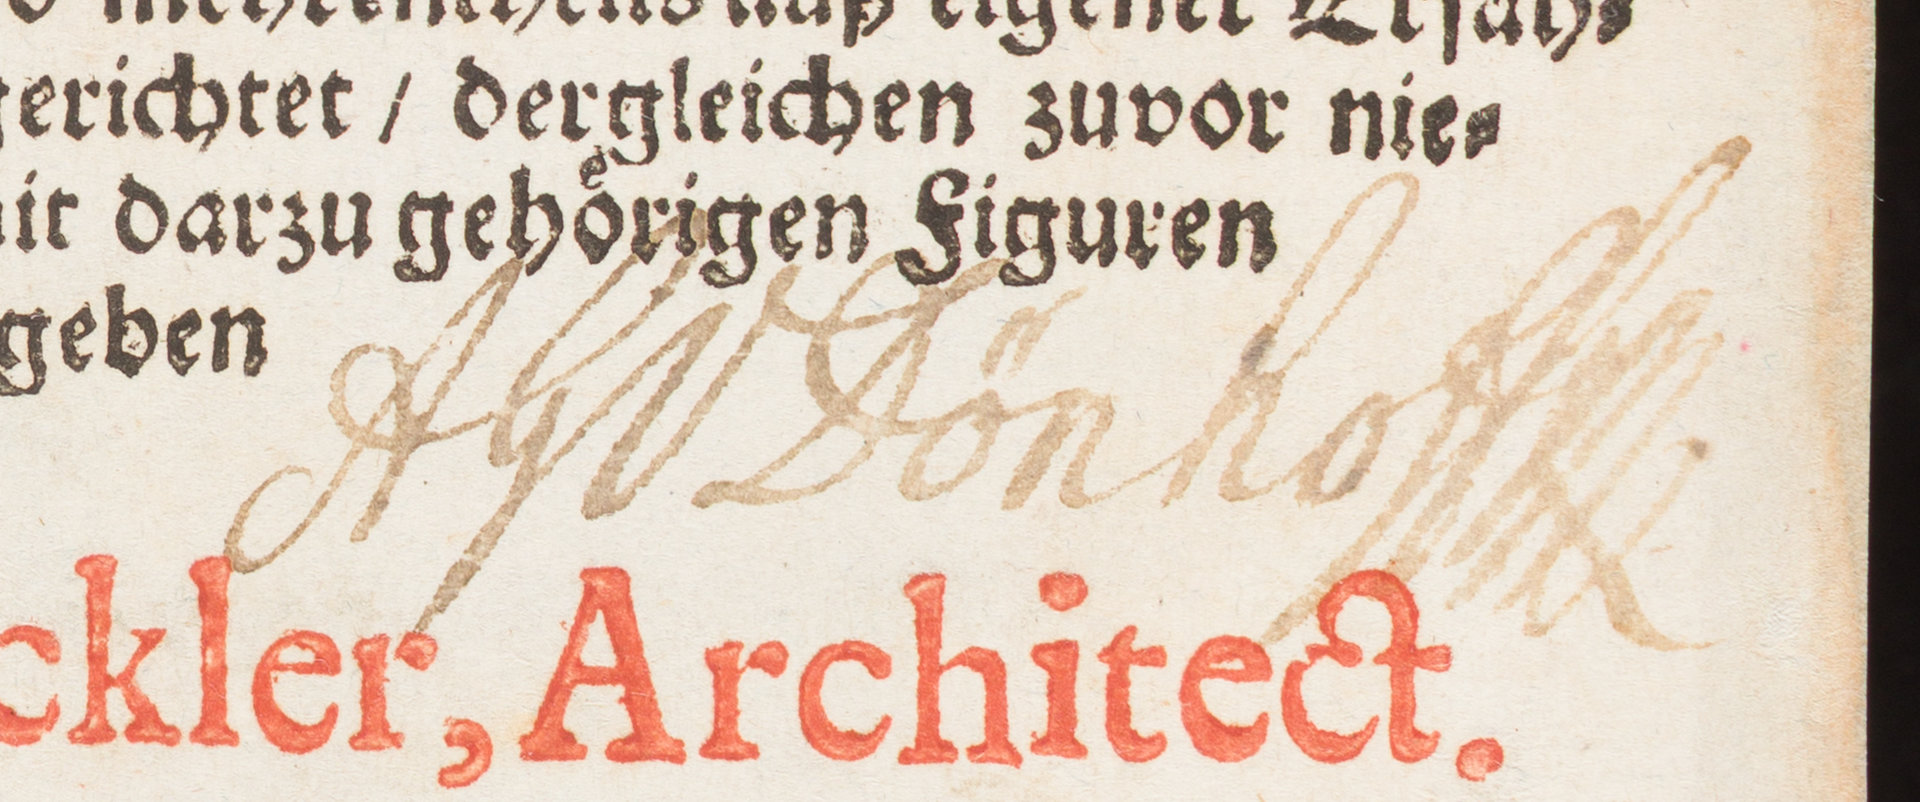 auß eigener Erfah⸗
gerichtet / dergleichen zuvor nie⸗
mit darzu gehoͤrigen Figuren
geben
Dönhoff
ckler, Architect.